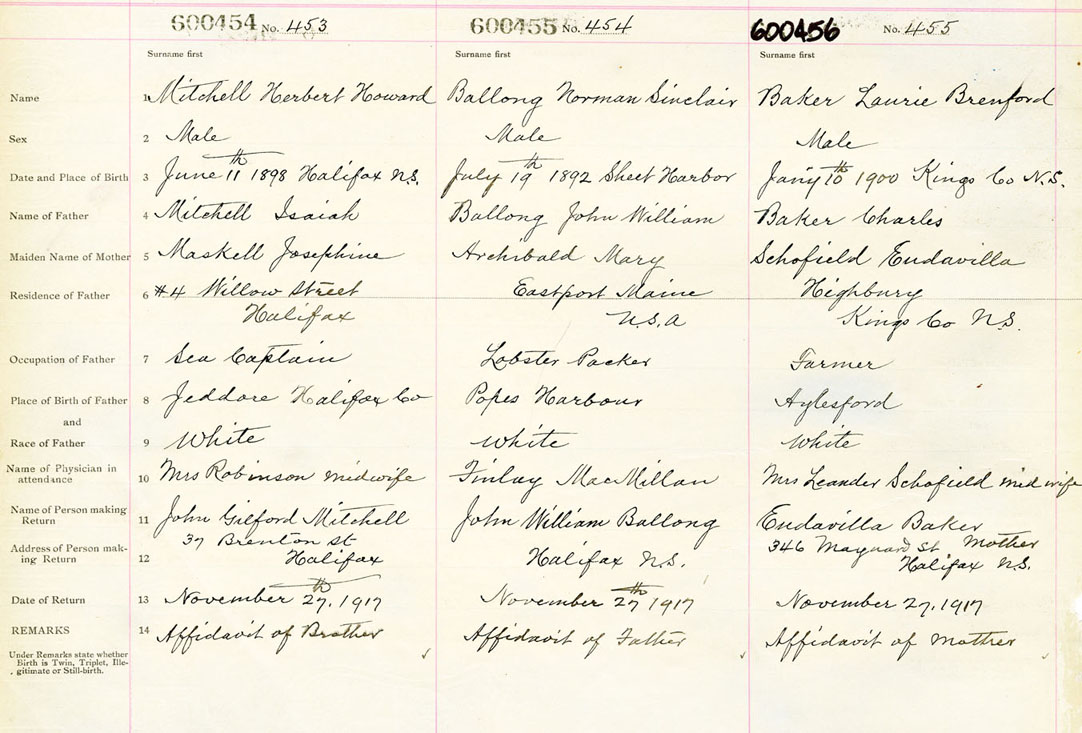 600454 No. 453 600455 No. 454 600456 No. 455
Surname first Surname first Surname first
Name 1 Mitchell Herbert Howard Ballong Norman Sinclair Baker Laurie Brenford
Sex 2 Male Male Male
Date and Place of Birth 3 June 11th 1898 Halifax N.S. July 19th 1892 Sheet Harbor Jan'y 10th 1900 Kings Co N.S.
Name of Father 4 Mitchell Isaiah Ballong John William Baker Charles
Maiden Name of Mother 5 Maskell Josephine Archibald Mary Schofield Eudavilla
Residence of Father 6 #4 Willow Street Eastport Maine Highbury
Halifax U.S.A Kings Co N.S.
Occupation of Father 7 Sea Captain Lobster Packer Farmer
Place of Birth of Father 8 Jeddore Halifax Co Popes Harbour Aylesford
and
Race of Father 9 White White White
Name of Physician in
attendance 10 Mrs Robinson midwife Finlay MacMillan Mrs Leander Schofield mid wife
Name of Person making
Return 11 John Gilford Mitchell John William Ballong Eudavilla Baker
37 Brenton St 346 Maynard St Mother
Address of Person mak-
ing Return 12 Halifax Halifax N.S. Halifax N.S.
Date of Return 13 November 27th, 1917 November 27th 1917 November 27, 1917
REMARKS 14 Affidavit of Brother Affidavit of Father Affidavit of Mother
Under Remarks state whether
Birth is Twin, Triplet, Ille-
gitimate or Still-birth.